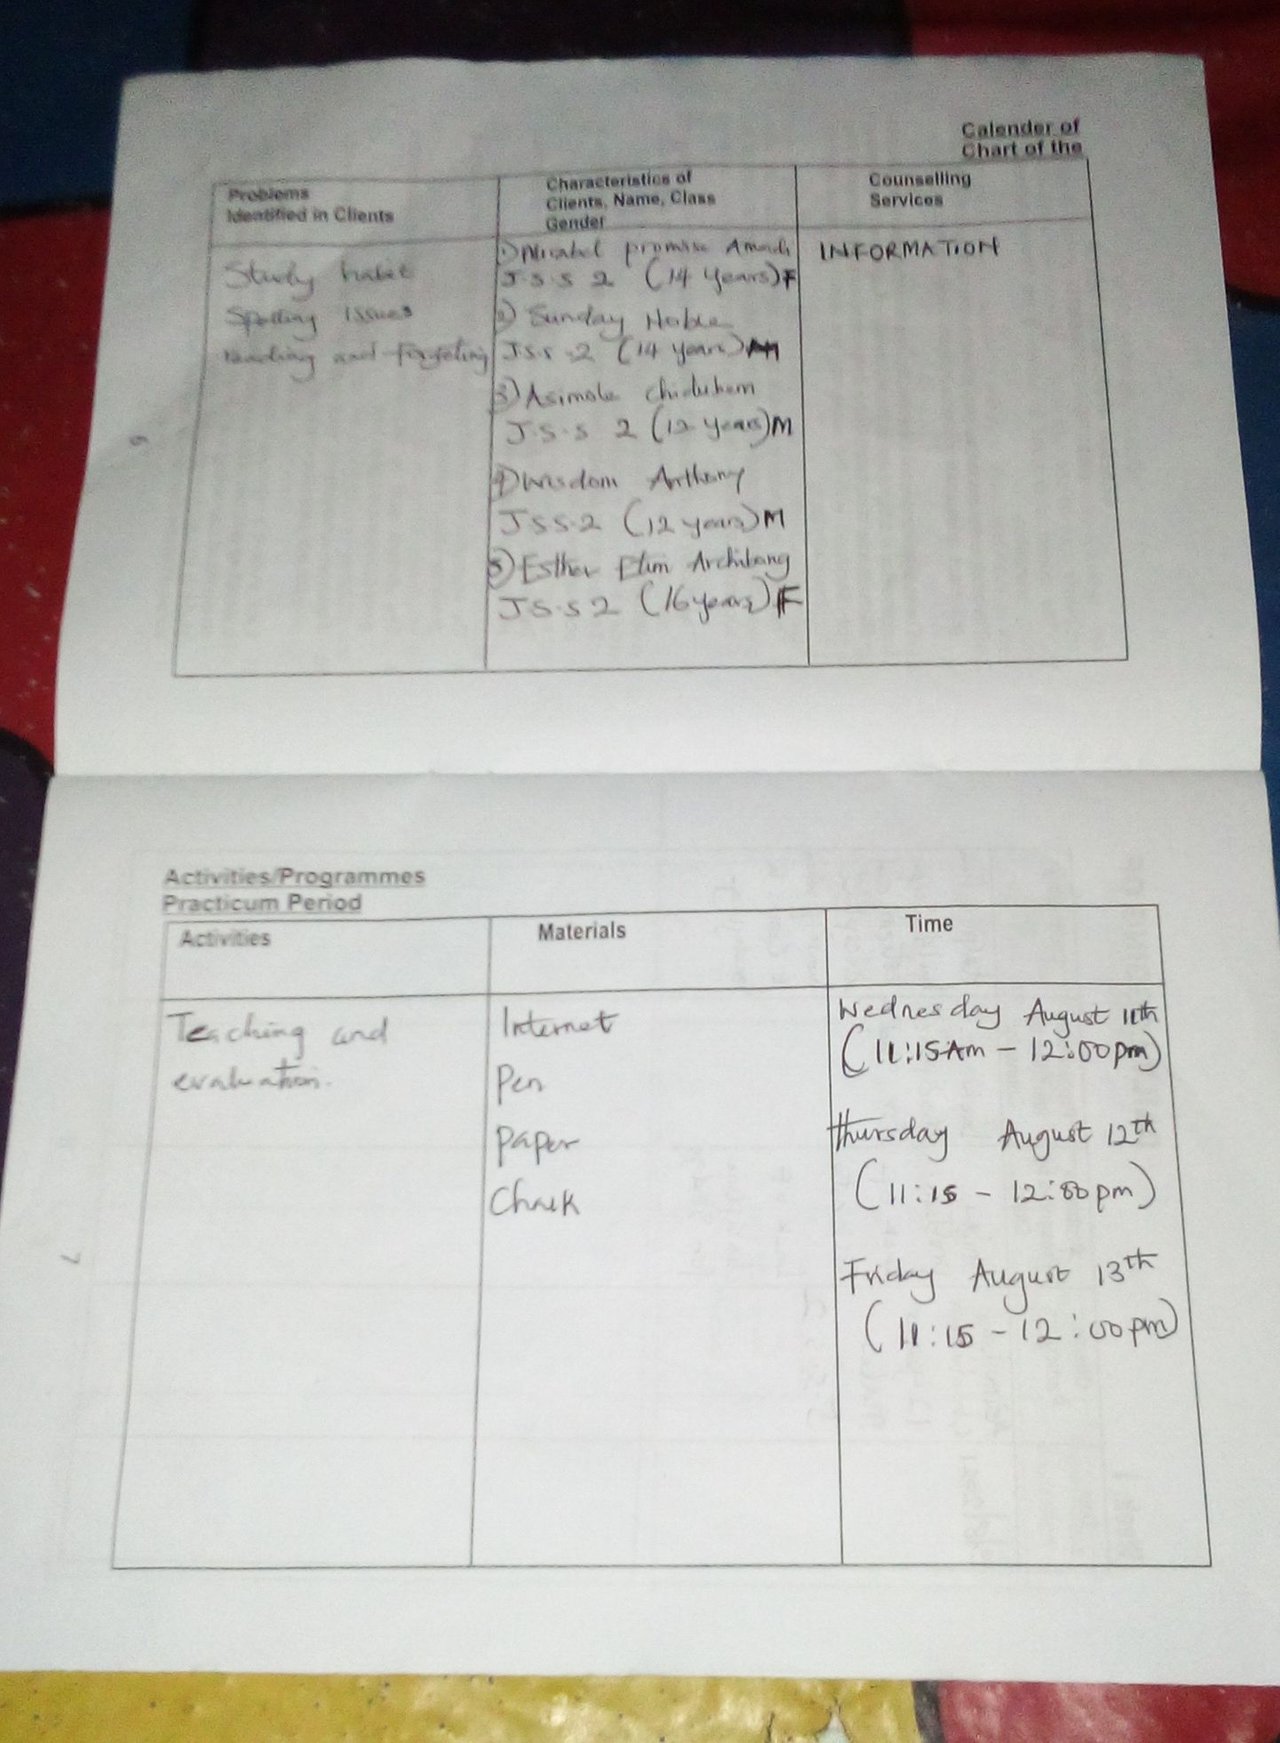 Calender of
Chart of the
Problems
Identified in Clients
Characteristics of
Clients, Name, Class
Gender
Counselling
Services
Study habit
Spelling issues
reading and forgeting
1) promise Amadi
J.S.S 2 (14 years) F
2) Sunday Noble
J.S.S 2 (14 years) M
3) Asimole Chidubem
J.S.S 2 (12 years) M
4) Wisdom Anthony
JSS.2 (12 years) M
5) Esther Etim Archibong
J.S.S 2 (16 years) F
INFORMATION
6
Activities/Programmes
Practicum Period
Activities
Materials
Time
Teaching and
evaluation.
Internet
Pen
paper
Chalk
Wednesday August 11th
(11:15Am - 12:00pm)
Thursday August 12th
(11:15 - 12:00pm)
Friday August 13th
(11:15 - 12:00pm)
7